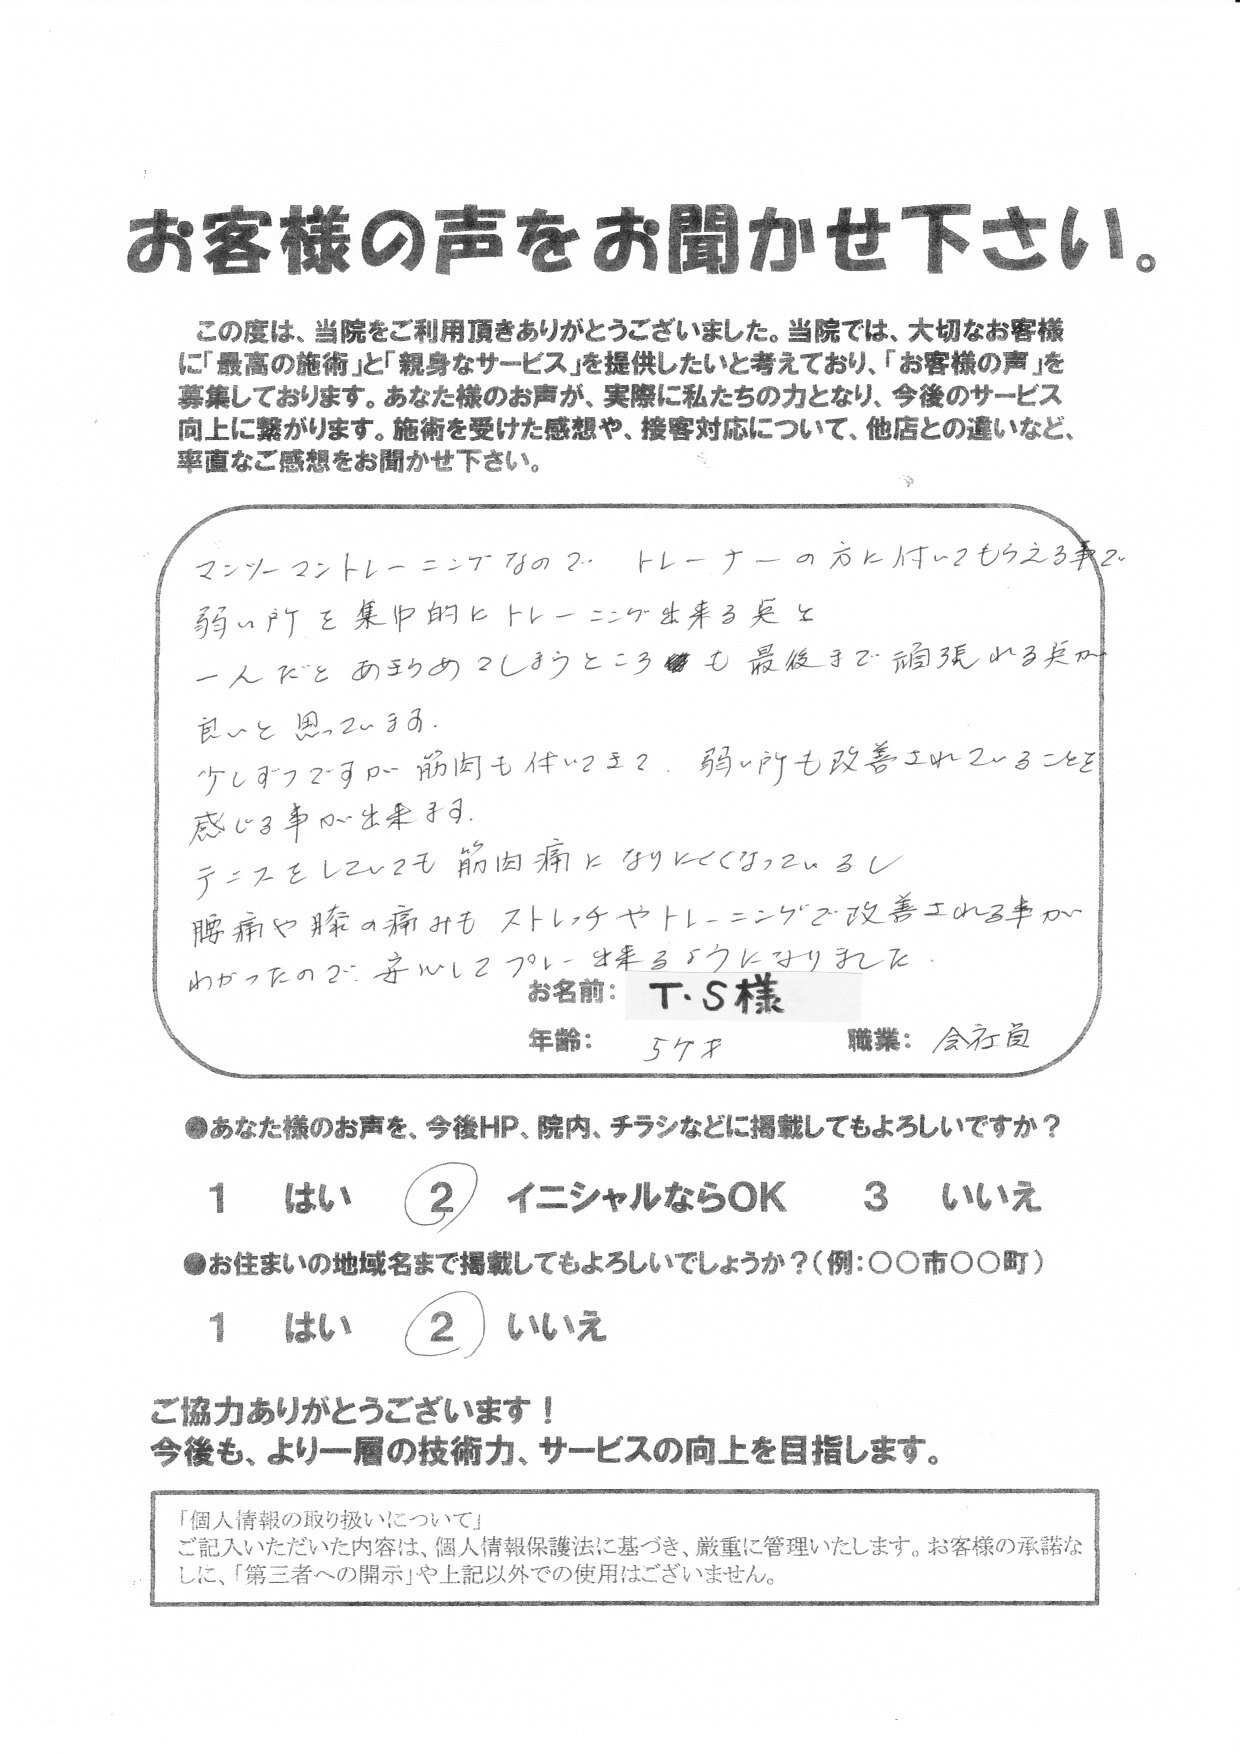 お客様の声をお聞かせ下さい。
この度は、当院をご利用頂きありがとうございました。当院では、大切なお客様
に「最高の施術」と「親身なサービス」を提供したいと考えており、「お客様の声」を
募集しております。あなた様のお声が、実際に私たちの力となり、今後のサービス
向上に繋がります。施術を受けた感想や、接客対応について、他店との違いなど、
率直なご感想をお聞かせ下さい。
マンツーマントレーニングなので トレーナーの方に付いてもらえる事で
弱い所を集中的にトレーニング出来る点と
一人だとあきらめてしまうところも最後まで頑張れる点が
良いと思っています.
少しずつですが筋肉も付いてきて、弱い所も改善されていることを
感じる事が出来ます.
テニスをしていても筋肉痛になりにくくなっているし
腰痛や膝の痛みもストレッチやトレーニングで改善される事が
わかったので、安心してプレー出来るようになりました.
お名前: T.S様
年齢: 才 職業: 会社員
●あなた様のお声を、今後HP、院内、チラシなどに掲載してもよろしいですか？
1 はい 2 イニシャルならOK 3 いいえ
●お住まいの地域名まで掲載してもよろしいでしょうか？(例:○○市○○町)
1 はい 2 いいえ
ご協力ありがとうございます！
今後も、より一層の技術力、サービスの向上を目指します。
「個人情報の取り扱いについて」
ご記入いただいた内容は、個人情報保護法に基づき、厳重に管理いたします。お客様の承諾な
しに、「第三者への開示」や上記以外での使用はございません。